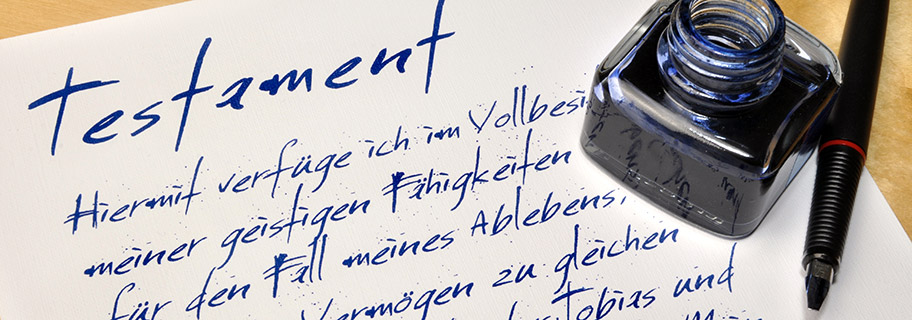 Testament
Hiermit verfüge ich im Vollbesi
meiner geistigen Fähigkeiten
für den Fall meines Ablebens,
Vermögen zu gleichen
Tobias und